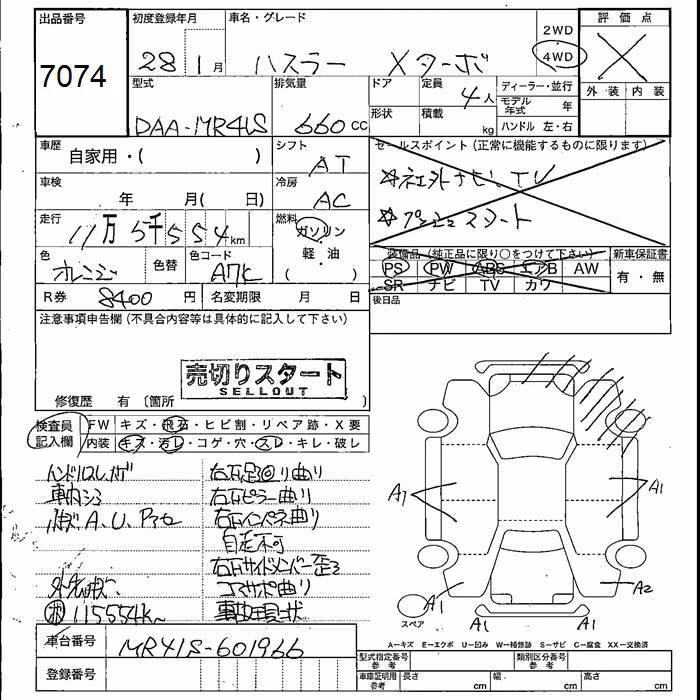 出品番号 初度登録年月 車名・グレード 2WD 評価点
7074 28 1月 ハスラー Xターボ 4WD
型式 排気量 ドア 定員 ディーラー・並行 外装 内装
4人 モデル年式 年
DAA-MR41S 660cc 形状 積載 kg ハンドル 左・右
車歴 自家用・( ) シフト AT セールスポイント(正常に機能するものに限ります)
車検 年 月( 日) 冷房 AC ☆社外ナビ、TV
走行 11万5千554km 燃料 ガソリン・軽・油( ) ☆プッシュスタート
色 オレンジ 色替 色コード A7K 装備品(純正品に限り○をつけて下さい) 新車保証書
PS PW ABS エアB AW 有・無
SR ナビ TV カワ
R券 8400円 名変期限 月 日 後日品
注意事項申告欄(不具合内容等は具体的に記入して下さい)
売切りスタート
SELLOUT
修復歴 有 (箇所 )
検査員記入欄 FW キズ・飛石・ヒビ割・リペア跡・X要
内装 キズ・汚レ・コゲ・穴・スレ・キレ・破レ
ハンドルスレ
車内シミ 右Fピラー曲り
A.U.Pアセ 右Fインパネ曲り
自走不可
右Fサイドメンバー歪ミ
コアサポ曲り
115554K~
A1 A1
A1 A2
スペア A1 A1
A=キズ E=エクボ U=凹み W=補修跡 S=サビ C=腐食 XX=交換済
車台番号 MR41S-601966
型式指定番号 参考 類別区分番号 参考
登録番号 車庫証明用 参考 長さ cm 幅 cm 高さ cm